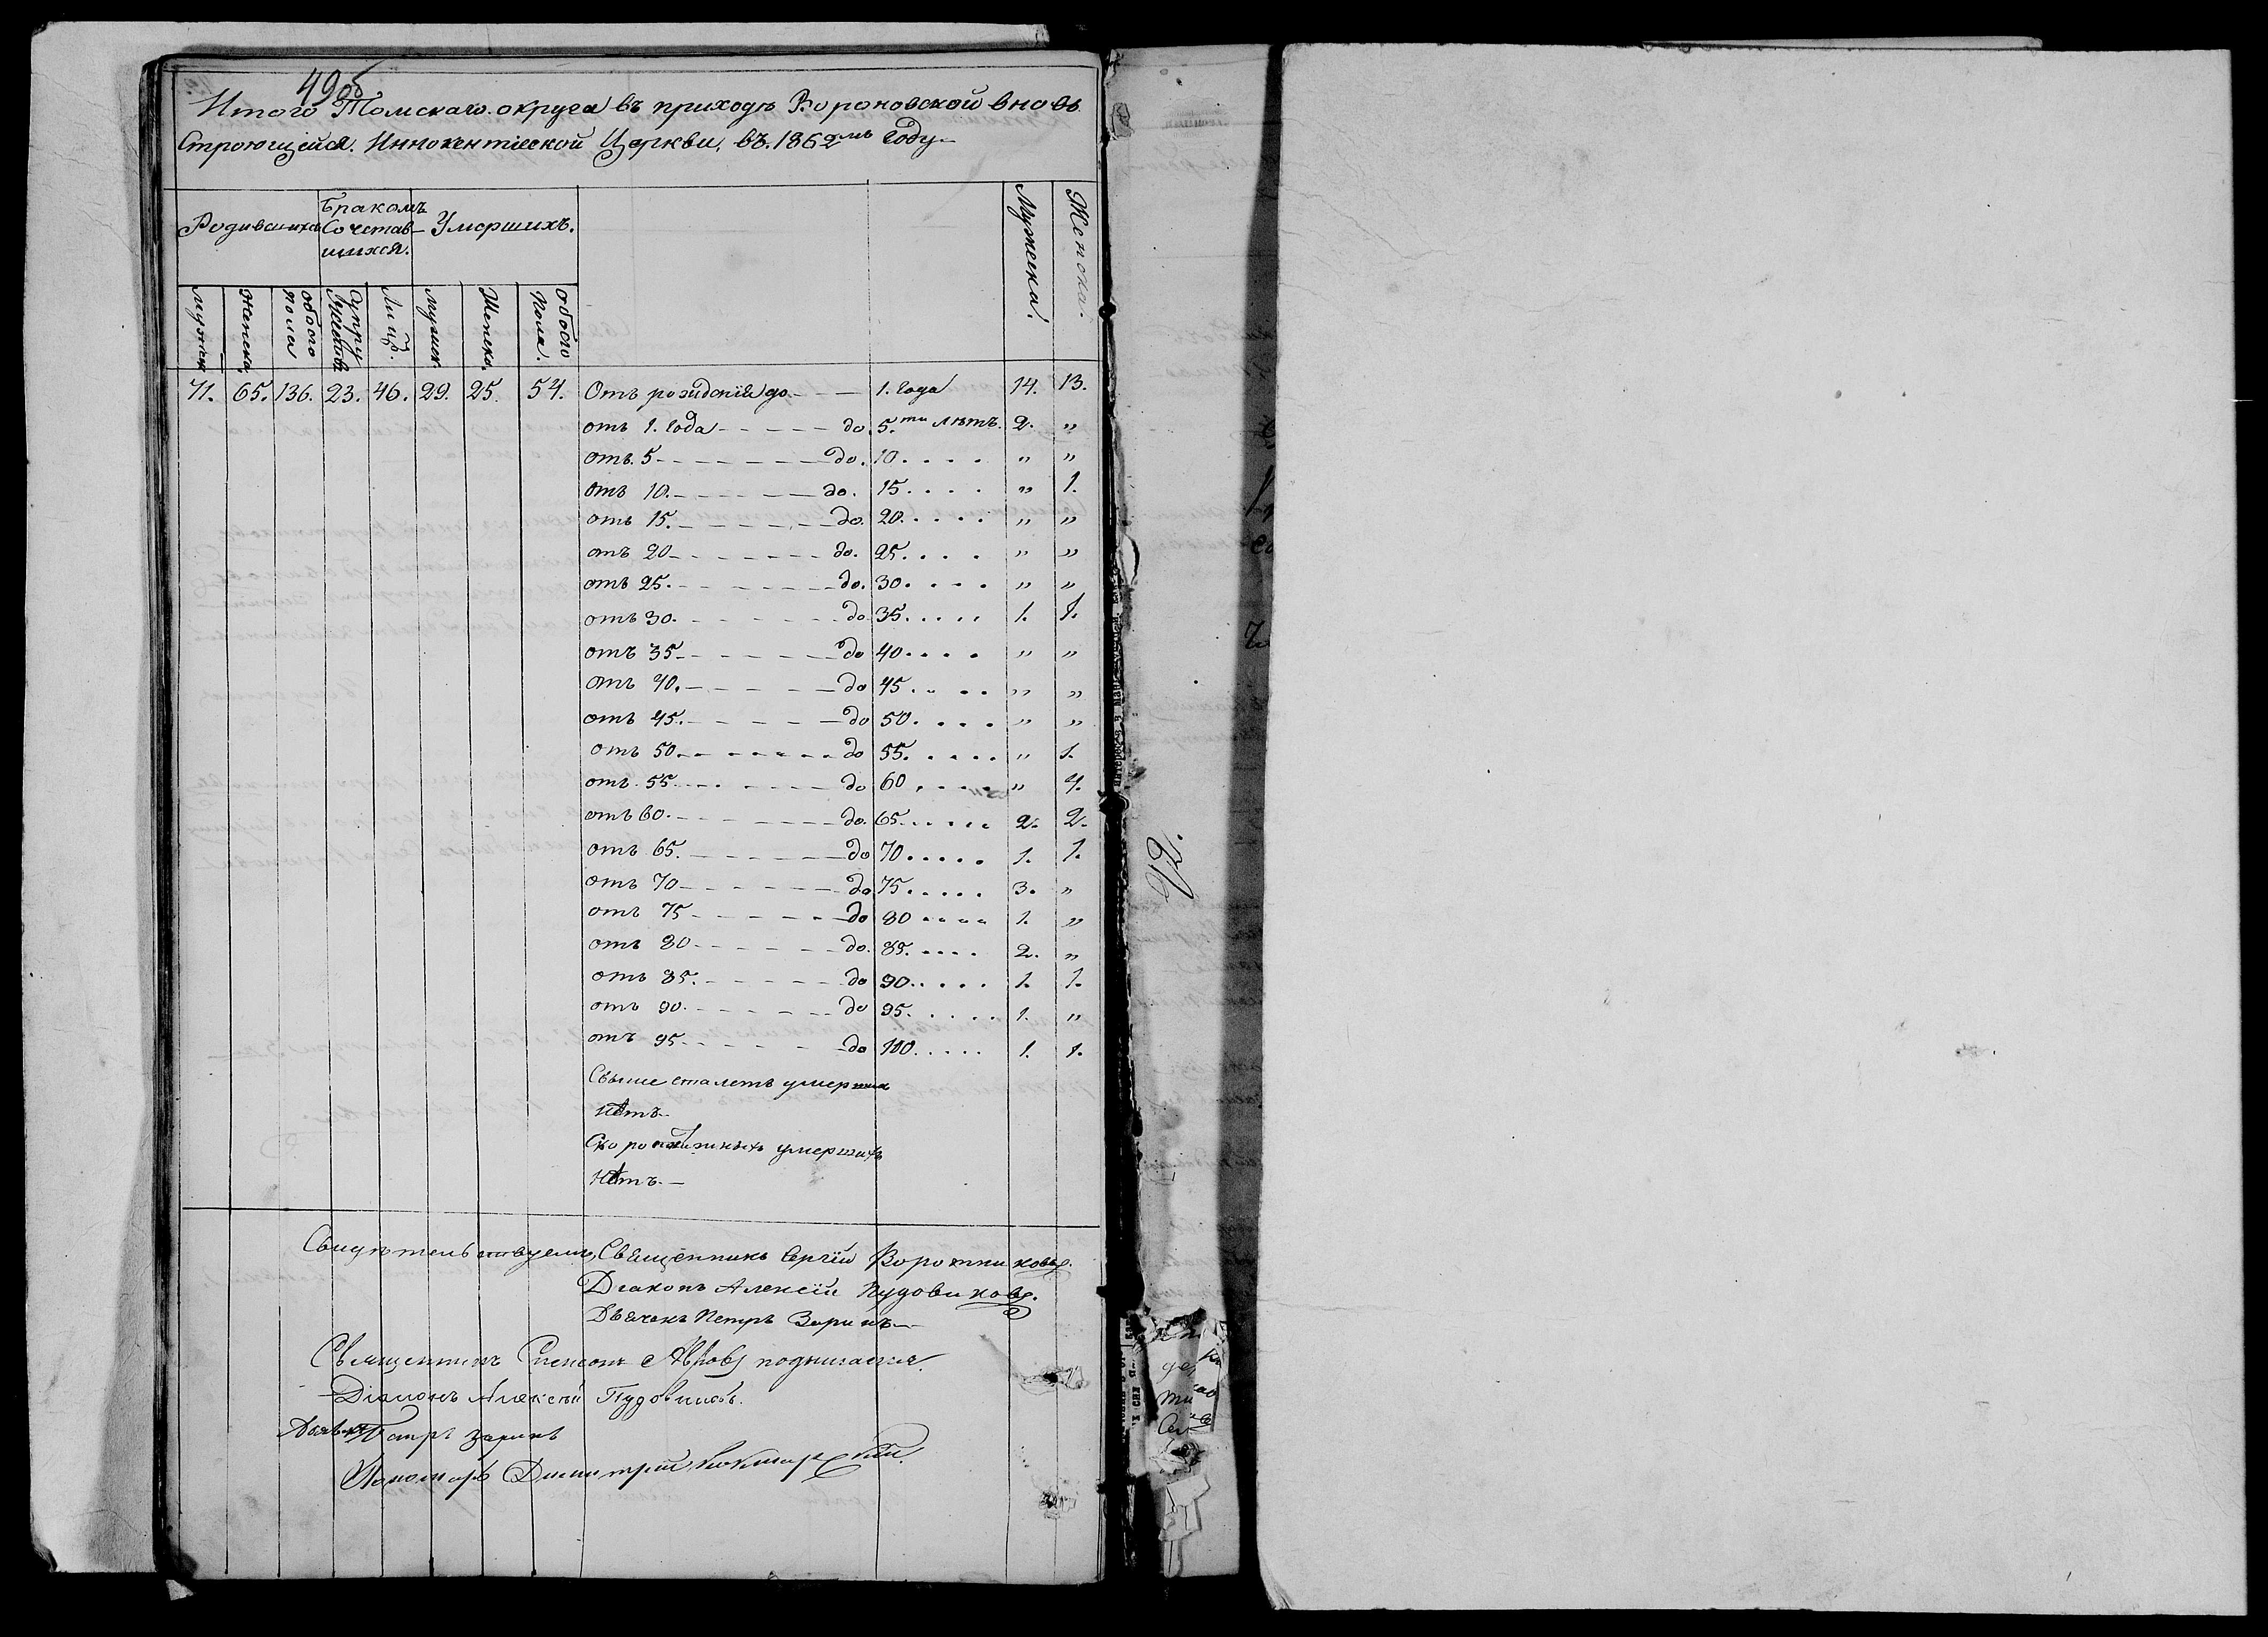 49об
Итого Томскаго округа въ приходѣ Вороновской вновь
Строющейся Иннокентіевской Церкви, въ 1862мъ Году
Родившихся Бракомъ Сочетавшихся. Умершихъ. Мужеска. Женска.
мужеск Женска обоего пола Супругустовъ Лицъ. мужеск Женска. обоего Пола.
71. 65. 136. 23. 46. 29. 25. 54. Отъ рожденія до 1. Года 14. 13.
отъ 1. Года до 5.ти лѣтъ. 2. "
отъ. 5 до. 10 " "
отъ 10. до. 15 " 1.
отъ 15. до. 20 " "
отъ 20 до. 25 " "
отъ 25. до. 30 " "
отъ 30. до 35 1. 1.
отъ 35 до 40 " "
отъ 40. до 45 " "
отъ 45. до 50 " "
отъ 50 до 55 " 1.
отъ 55 до 60 " 4.
отъ 60. до. 65 2. 2.
отъ 65. до 70 1. 1.
отъ 70 до 75 3. "
отъ 75 до 80 1. "
отъ 80 до. 85 2. "
отъ 85. до 90 1. 1.
отъ 90. до 95 1. "
отъ 95 до 100 1. 1.
Свыше сталетъ умерших
нѣтъ.
Скоропостижныхъ умершихъ
Нѣтъ.—
Свидѣтельствуемъ, Священникъ Сергій Воротниковъ.
Діаконъ Алексій Пудовиковъ.
Дьячекъ Петръ Заринъ
Священникъ подписался.
Діаконъ Алексѣй Пудовиковъ.
Дьячекъ Петръ Заринъ
Пономарь Димитрій
22.